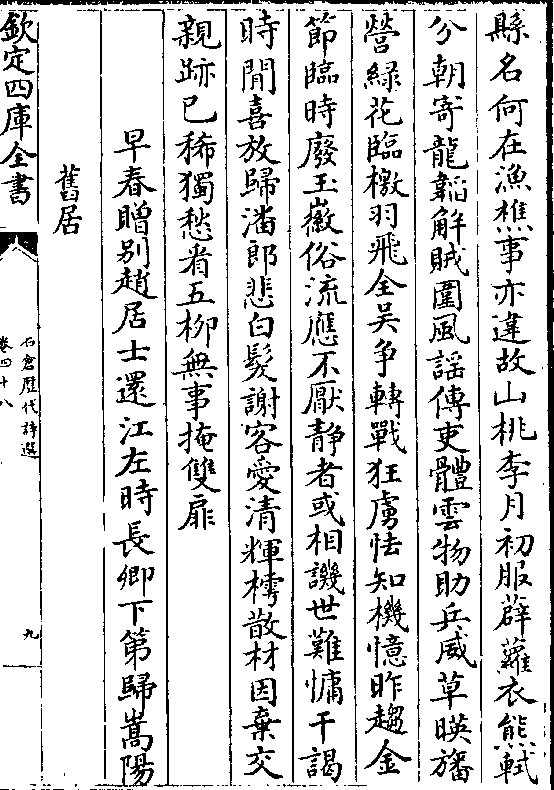 縣名何在漁樵事亦違故山桃李月初服薜蘿衣熊軾
分朝寄龍韜解賊圍風謡傳吏體雲物助兵威草暎旛
營緑花臨檄羽飛全吴争轉戰狂虜怯知機憶昨趨金
節臨時廢玉徽俗流應不厭静者或相譏世難慵干謁
時閒喜放歸潘郎悲白髮謝客愛清輝樗散材因棄交
親跡已稀獨愁看五柳無事掩雙扉
早春贈别趙居士還江左時長卿下第歸嵩陽
舊居
欽定四庫全書
石倉歴代詩選
卷四十八
九